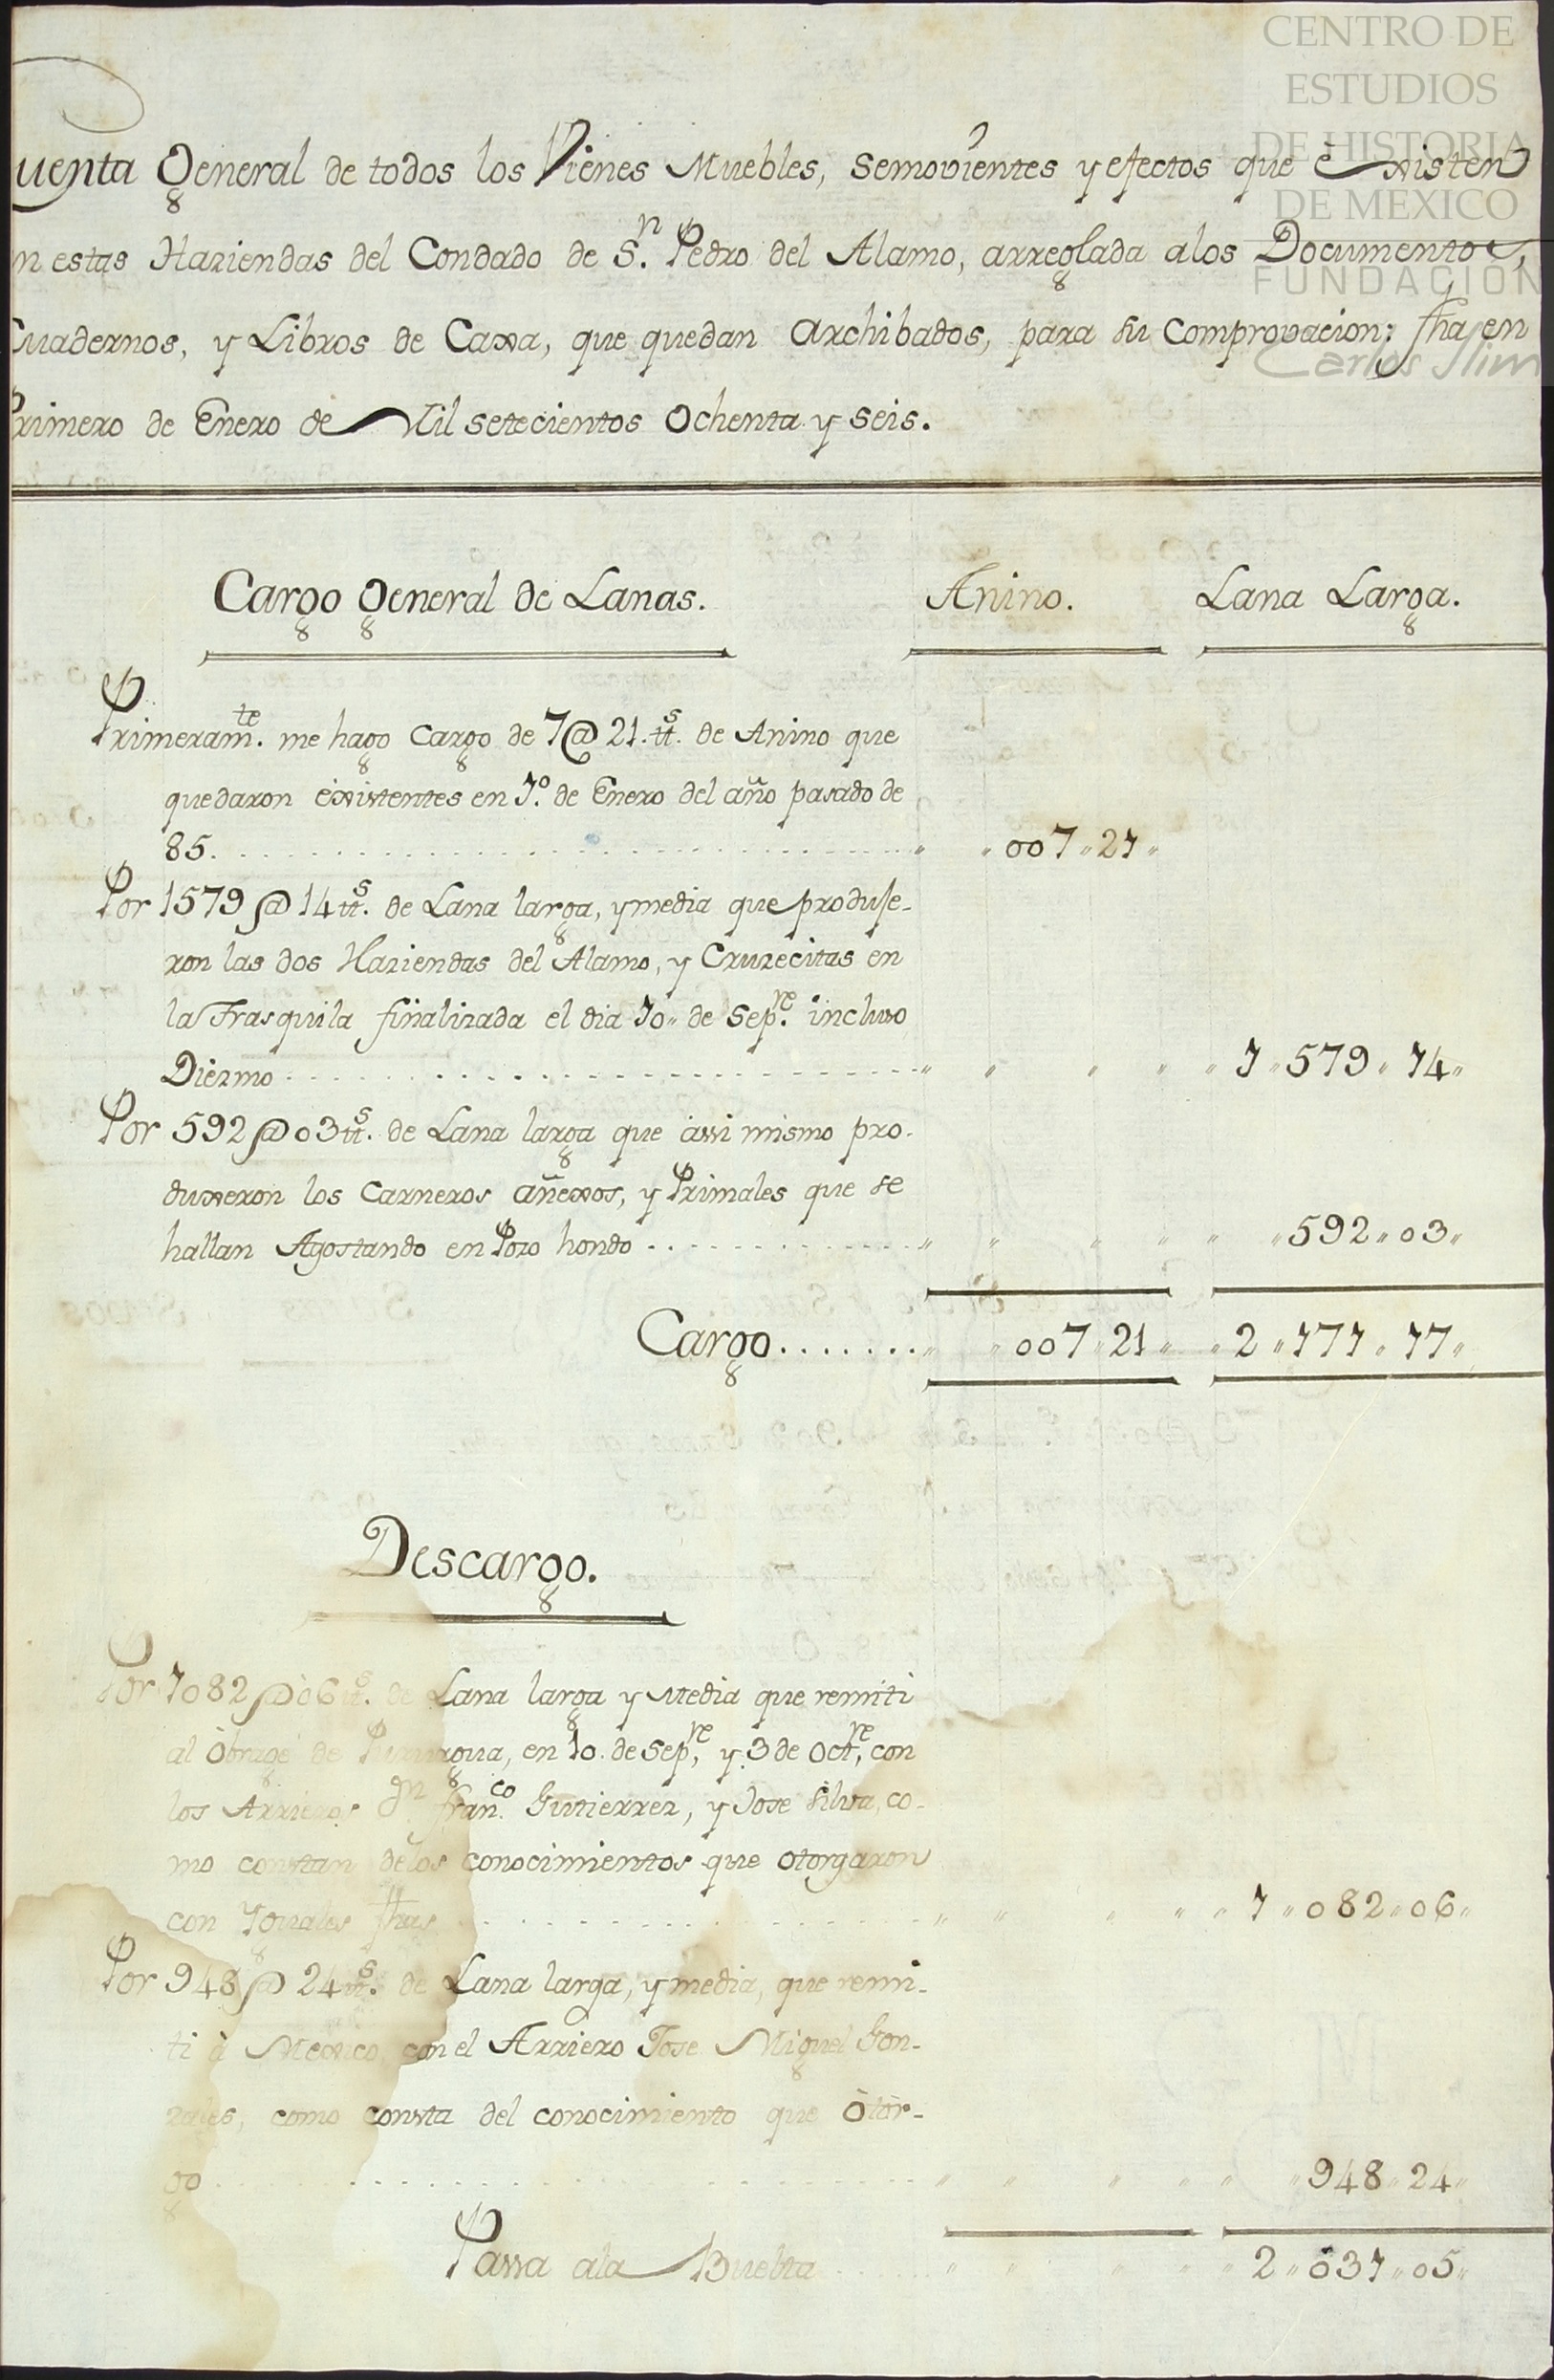 CENTRO DE
ESTUDIOS
DE HISTORIA
DE MEXICO
FUNDACIÓN
Carlos Slim
uenta General de todos los Vienes Muebles, Semovientes y efectos que èxisten
n estas Haziendas del Condado de S.n Pedro del Alamo, arreglada a los Documentos,
Cuadernos, y Libros de Caxa, que quedan Archibados, para su Comprovacion; fha en
Primero de Enero de Mil setecientos Ochenta y seis.
Cargo General de Lanas. Anino. Lana Larga.
Primeram.te me hago Cargo de 7@ 21. tt.s de Anino que
quedaron èxistentes en 1º. de Enero del año pasado de
85. 007 21
Por 1579 @ 14 tt.s de Lana larga, y media que produse-
ron las dos Haziendas del Alamo, y Cruzecitas en
la Trasquila finalizada el dia 10 de Sep.re incluso
Diezmo 1 579 14
Por 592 @ 03 tt.s de Lana larga que assi mismo pro-
duxeron los Carneros añexos, y Primales que se
hallan Agostando en Pozo hondo 592 03
Cargo 007 21 2 171 17
Descargo.
Por 1082 @ 06 tt.s de Lana larga y Media que remiti
al Obrage de en 10. de Sep.re, y 3 de Oct.re, con
los Arrieros Fran.co Gutierrez, y Jose Silva, co-
mo constan de los conocimientos que otorgaron
con Yguales fhas 1 082 06
Por 948 @ 24 tt.s de Lana larga, y media, que remi-
ti à Mexico, con el Arriero Jose Miguel Gon-
zales, como consta del conocimiento que Otor-
go 948 24
Passa ala Buelta 2 031 05